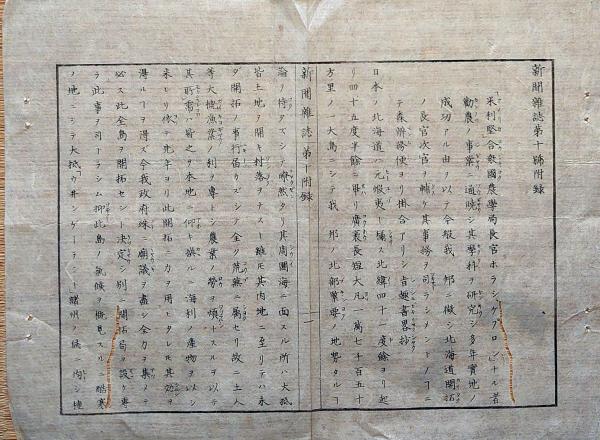 新聞雜誌第十號附録
米利堅合衆國農學局長官ホラシケプロンナル者
勸農ノ事業ニ通暁シ其學科ヲ研究シ多年實地ノ
成功アル由ヲ以テ今般我 邦ニ徴シ北海道開拓
ノ長官次官ヲ輔ケ其事務ヲ司ラシメントノヿニ
テ森辨務使ヨリ掛合アリシ旨趣書畧抄
日本ノ北海道ハ元蝦夷ト稱ス北緯四十一度餘ヨリ起
リ四十五度半餘ニ事リ廣袤長短大凡一萬七千百五十
方里ノ一大島ニシテ我 邦ノ北部
ノ地界タルヿ
新聞雜誌第十附録
論ヲ待タズシテ瞭然タリ其周圍海ニ面スル所ハ大抵
皆土地ヲ開キ村落ヲナスト雖モ其内地ニ至リテハ未
ダ開拓ノ事行届カズシテ全ク荒蕪ニ屬セリ故ニ土人
等大抵漁業ノ利ヲ專ラニシ農業ノ勞ヲ煩ハスルヲ以テ
其所需ハ皆之ヲ本地ニ仰キ換ルニ海利ノ産物ヲ以シ
来レリ依テ先年ヨリ此開拓ニ力ヲ用ヒタレモ其効ヲ
得ルヿヲ得ズ今我政府殊ニ廟議ヲ盡シ全力ヲ集メテ
必ス此全島ヲ開拓セント決定シ別ニ開拓局ヲ設ケ專
ラ此事ヲ司ラシム抑此島ノ氣候ヲ概見スルニ酷寒
ノ地ニシテ大抵